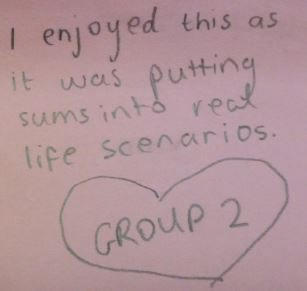 I enjoyed this as
it was putting
sums into real
life scenarios.
GROUP 2